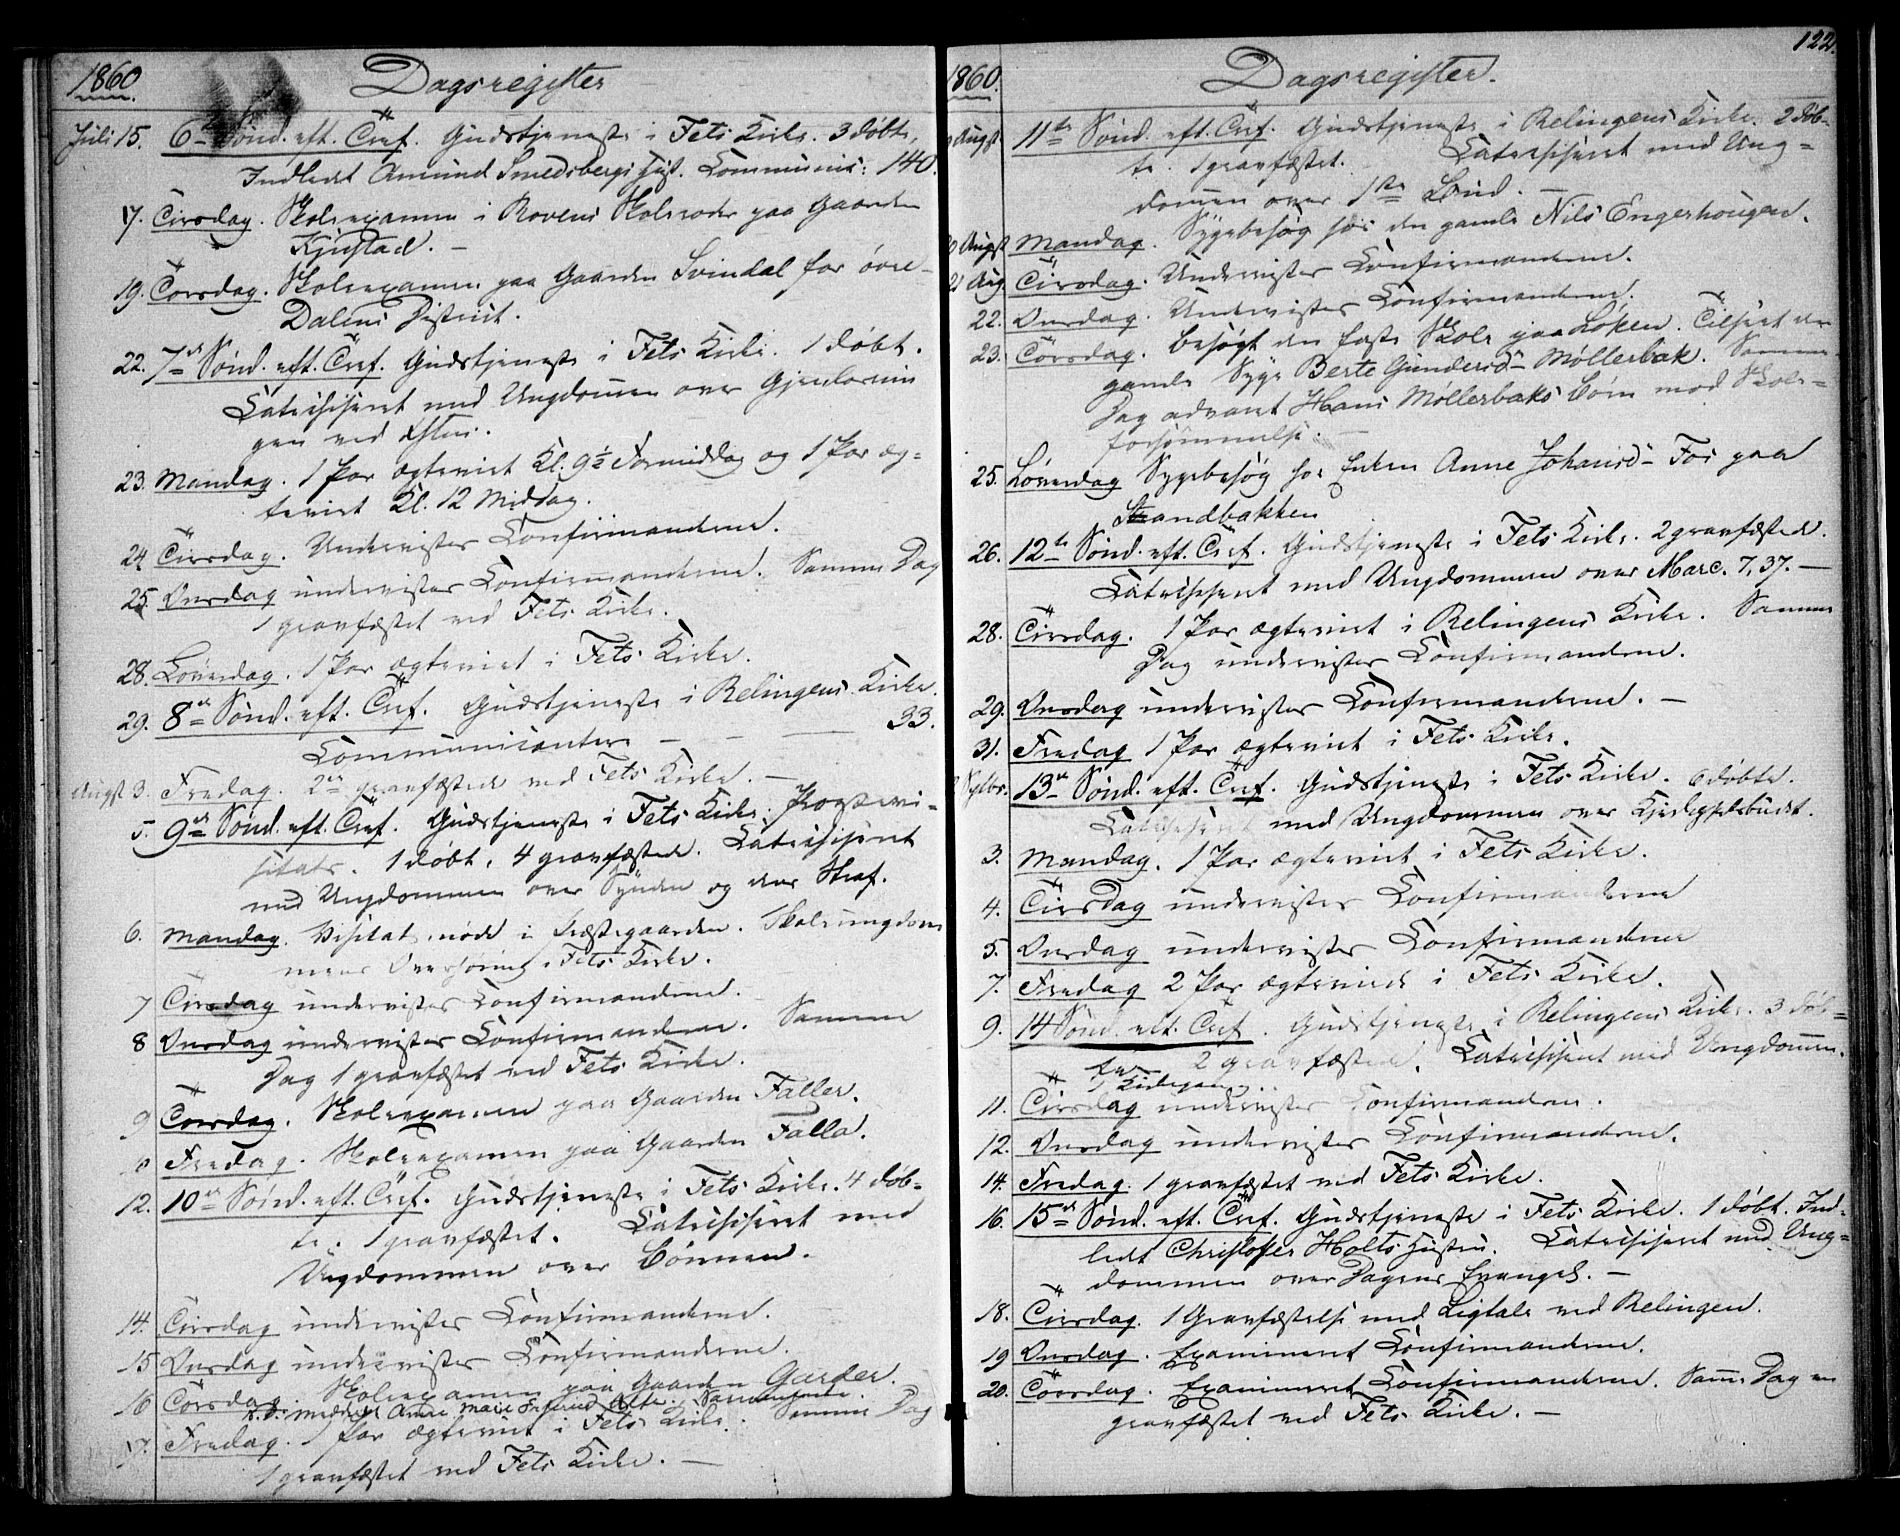 1860. Dagsregister
Juli 15. 6te Sönd. eft. Tref. Gudstjeneste i Fets Kirke. 3 döbte.
Indledet Amund Smedsbergs Hust. Communic: 140.
17. Tirsdag. Skolexamen i Rovens Skolerode paa Gaarden
Kjustad. –
19. Torsdag. Skolexamen paa Gaarden Svindal for övre
Dalens District.
22. 7de Sönd. eft. Tref. Gudstjeneste i Fets Kirke. 1 döbt.
Catechiseret med Ungdommen over Gjenlösnin
gen ved
23. Mandag. 1 Par ægteviet Kl. 9½ Formiddag og 1 Par æg-
teviet Kl. 12 Middag.
24 Tirsdag. Undervistes Confirmanderne.
25. Onsdag undervistes Confirmanderne. Samme Dag
1 gravfæstet ved Fets Kirke.
28. Löverdag. 1 Par ægteviet i Fets Kirke.
29. 8de Sönd. eft. Tref. Gudstjeneste i Relingens Kirke.
Communicantere – – 33.
Augst 3. Fredag. 2de gravfæstede ved Fets Kirke. –
5. 9de Sönd. eft. Tref. Gudstjeneste i Fets Kirke. Provstevi-
sitats. 1 döbt. 4 gravfæstede. Catechiseret
med Ungdommen over Synden og dens Straf.
6. Mandag. Visitatsmöde i Præstegaarden. Skoleungdom
mens Overhöring i Fets Kirke.
7 Tirsdag undervistes Confirmanderne.
8 Onsdag undervistes Confirmanderne. Samme
Dag 1 gravfæstet ved Fets Kirke.
9 Torsdag. Skolexamen paa Gaarden Faller.
Fredag. Skolexamen paa Gaarden Falla.
12. 10de Sönd. eft. Tref. Gudstjeneste i Fets Kirke. 4 döb-
te. 1 gravfæstet. Catechiseret med
Ungdommen over Bönnen.
14. Tirsdag undervistes Confirmanderne.
15 Onsdag undervistes Confirmanderne.
16 Torsdag. Skolexamen paa Gaarden Garder.
Anne Marie
17. Fredag. 1 Par ægteviet i Fets Kirke. Samme Dag
1 gravfæstet ved Fets Kirke. –
122.
1860. Dagsregister.
Augst 11te Sönd. eft. Tref. Gudstjeneste i Relingens Kirke. 2 döb-
te. 1 gravfæstet. Catechiseret med Ung-
dommen over 1ste Bud. –
Augst Mandag. Sygebesög hos den gamle Nils Engerhougen.
21 Aug. Tirsdag. Undervistes Confirmanderne.
22. Onsdag. Undervistes Confirmanderne.
23. Torsdag. Besögt den faste Skole paa Löken. Tilseet den
gamle syge Berte Gundersd– Møllerbak. Samme
Dag advaret Hans Møllerbaks Börn mod Skole-
forsömmelse. –
25. Löverdag Sygebesög hos Enken Anne Johansd– Fos paa
Strandbakken
26. 12te Sönd. eft. Tref. Gudstjeneste i Fets Kirke. 2 gravfæstede.
Catechiseret med Ungdommen over Marc. 7,37. –
28. Tirsdag. 1 Par ægteviet i Relingens Kirke. Samme
Dag undervistes Confirmanderne.
29. Onsdag undervistes Confirmanderne. –
31. Fredag 1 Par ægteviet i Fets Kirke.
13de Sönd. eft. Tref. Gudstjeneste i Fets Kirke. 6 döbte.
Catechiseret med Ungdommen over Kjerlighedsbudet.
3. Mandag. 1 Par ægteviet i Fets Kirke.
4. Tirsdag undervistes Confirmanderne
5. Onsdag undervistes Confirmanderne
7. Fredag 2 Par ægteviede i Fets Kirke.
9. 14 Sönd. eft. Tref. Gudstjeneste i Relingens Kirke. 3 döb-
te. 2 gravfæstede. Catechiseret med Ungdommen.
1 Kirkegang.
11. Tirsdag undervistes Confirmanderne.
12. Onsdag undervistes Confirmanderne.
14. Fredag. 1 gravfæstet ved Fets Kirke.
16. 15de Sönd. eft. Tref. Gudstjeneste i Fets Kirke. 1 döbt. Ind-
ledt Christoffer Holts Hustru. Catechiseret med Ung-
dommen over Dagens Evangel. –
18. Tirsdag. 1 Gravfæstelse med Ligtale ved Relingen.
19 Onsdag. Examineret Confirmanderne.
20. Torsdag. Examineret Confirmanderne. Samme Dag en
gravfæstet ved Fets Kirke. –